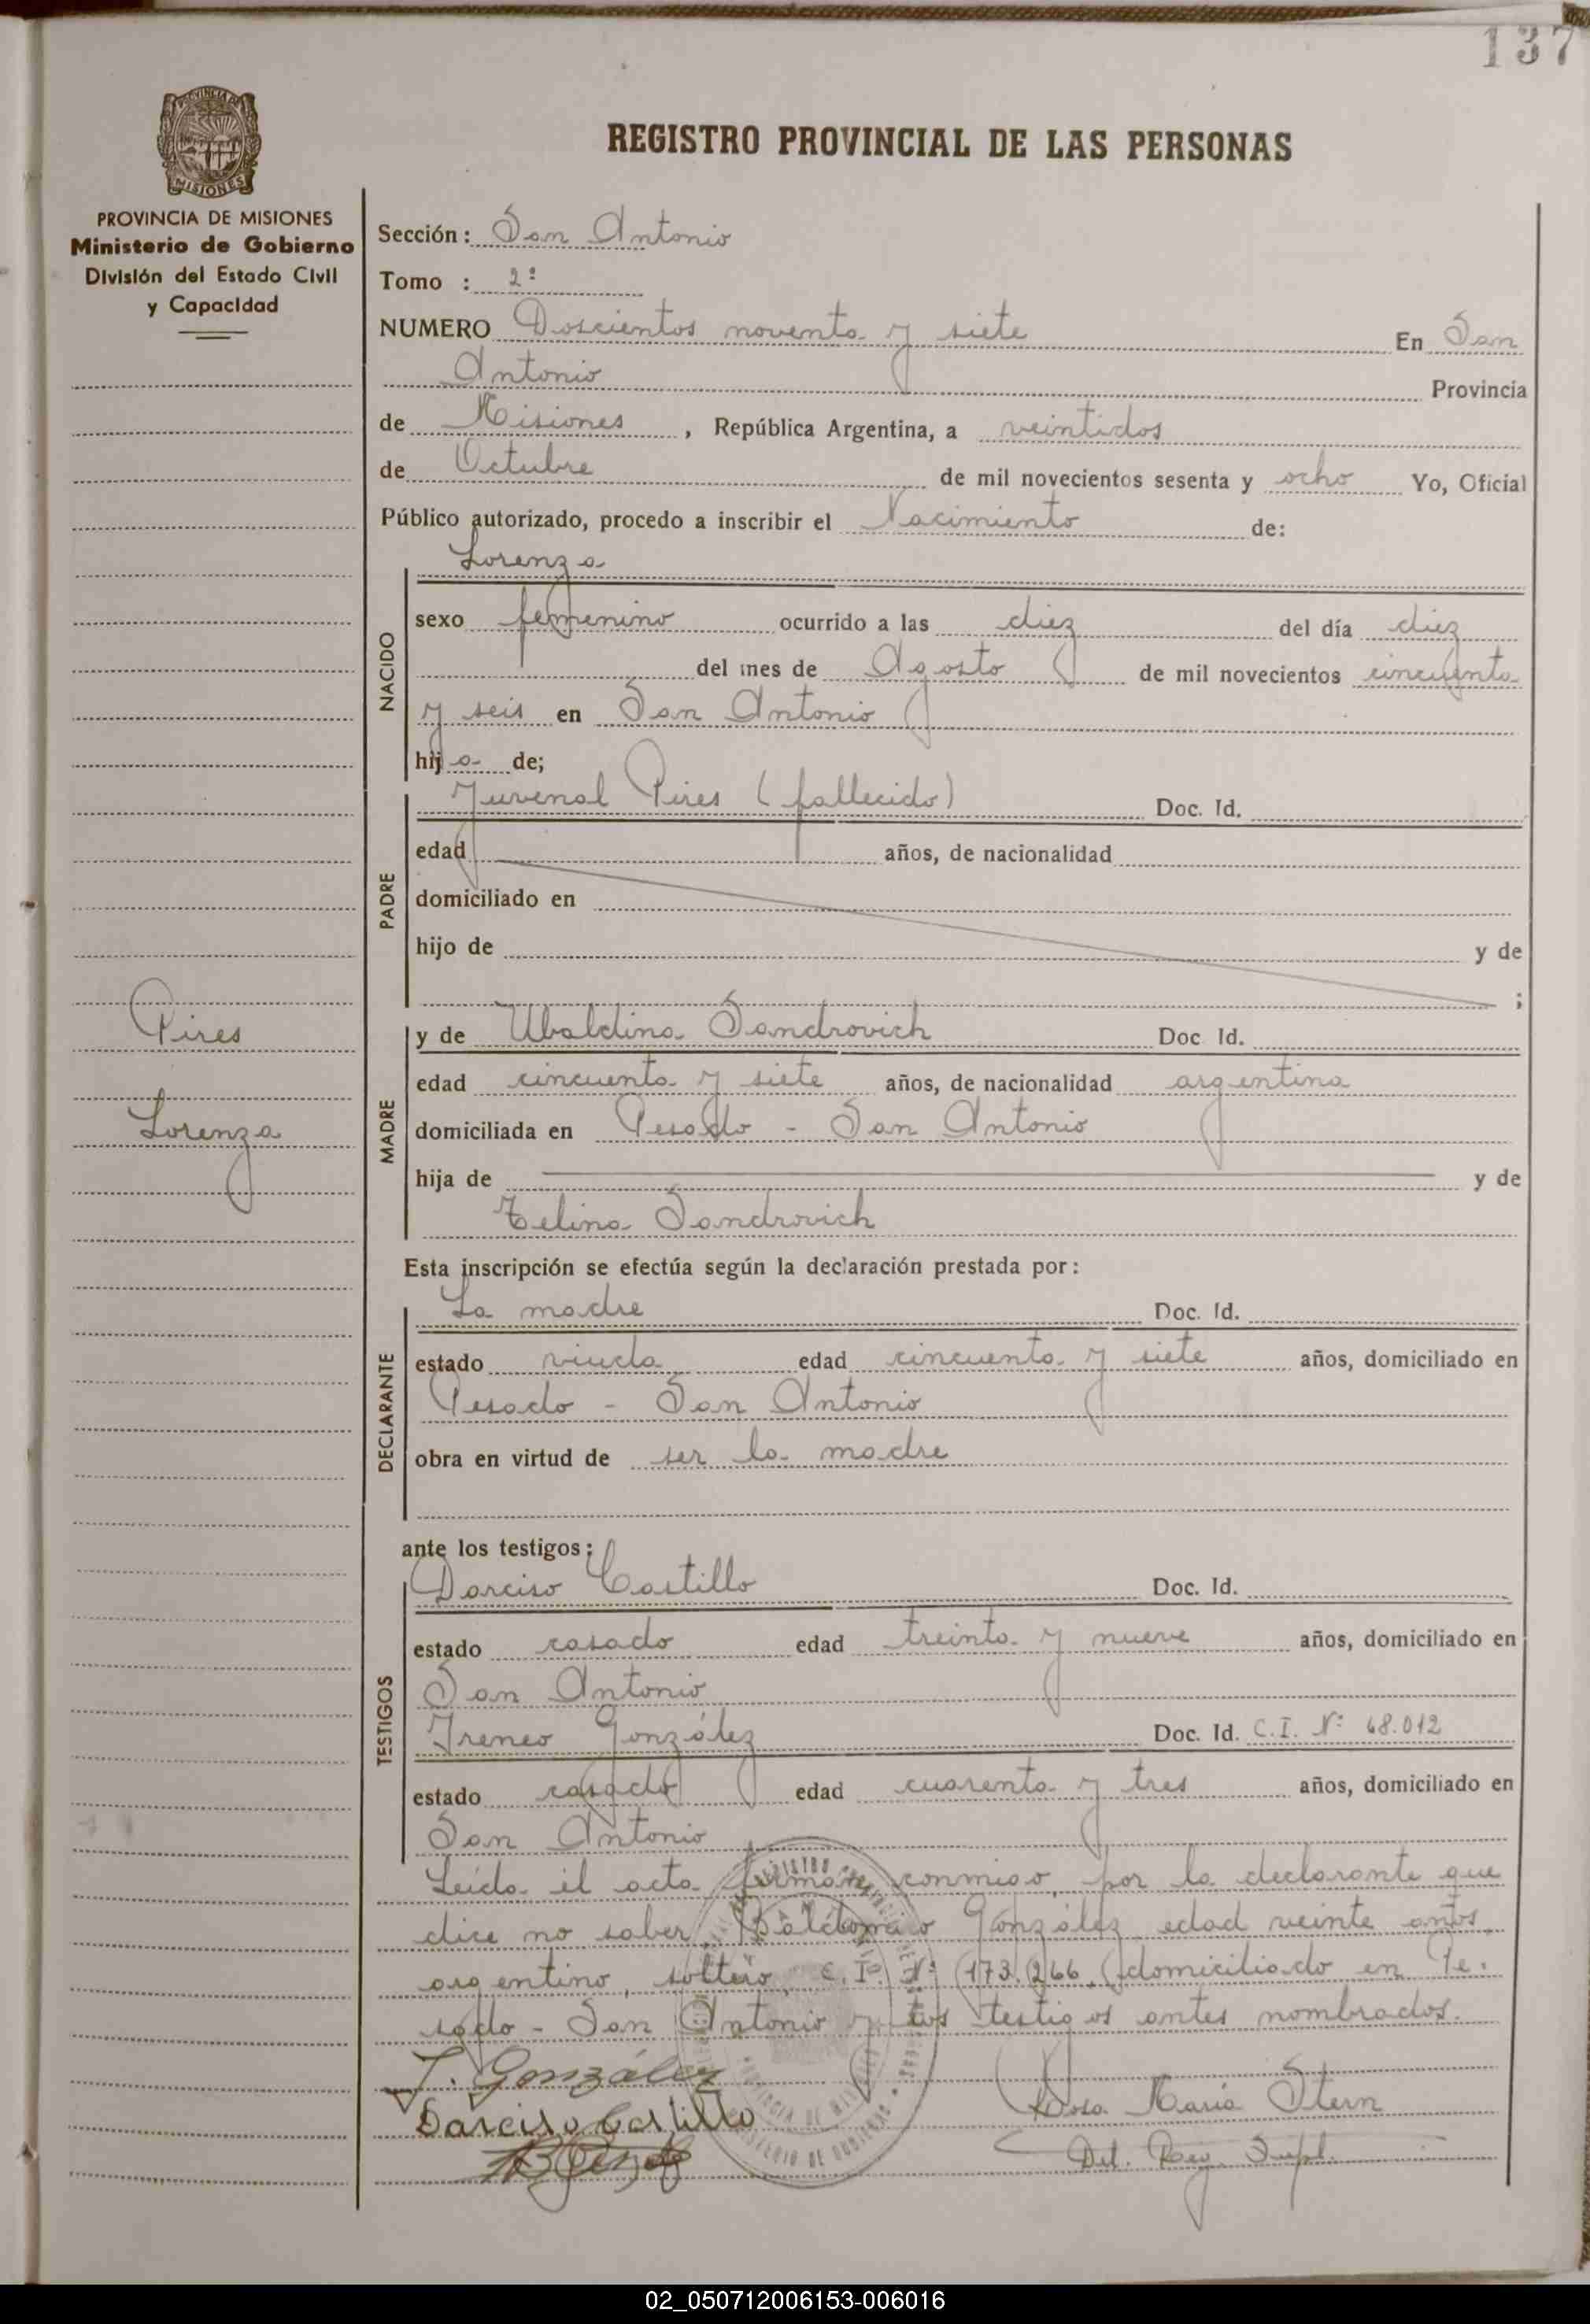 137
PROVINCIA DE
MISIONES
REGISTRO PROVINCIAL DE LAS PERSONAS
PROVINCIA DE MISIONES
Ministerio de Gobierno
División del Estado Civil
y Capacidad
Sección: San Antonio
Tomo : 2º
NUMERO Doscientos noventa y siete En San
Antonio Provincia
de Misiones, República Argentina, a veintidos
de Octubre de mil novecientos sesenta y ocho Yo, Oficial
Público autorizado, procedo a inscribir el Nacimiento de:
NACIDO
Lorenza
sexo femenino ocurrido a las diez del día diez
del mes de Agosto de mil novecientos cincuenta
y seis en San Antonio
hija de;
PADRE
Juvenal Pires (fallecido) Doc. Id.
edad años, de nacionalidad
domiciliado en
hijo de y de
;
Pires
Lorenza
MADRE
y de Ubaldina Sandrovich Doc. Id.
edad cincuenta y siete años, de nacionalidad argentina
domiciliada en Pesado - San Antonio
hija de y de
Zelina Sandrovich
Esta inscripción se efectúa según la declaración prestada por:
DECLARANTE
La madre Doc. Id.
estado viuda edad cincuenta y siete años, domiciliado en
Pesado - San Antonio
obra en virtud de ser la madre
ante los testigos:
TESTIGOS
Darciso Castillo Doc. Id.
estado casado edad treinta y nueve años, domiciliado en
San Antonio
Ireneo González Doc. Id. C.I. Nº 68.012
estado casado edad cuarenta y tres años, domiciliado en
San Antonio
Leída el acta firman conmigo, por la declarante que
dice no saber, Baldomero González, edad veinte años,
argentino, soltero, C.I. Nº 173.266, domiciliado en Pe-
sado - San Antonio y los testigos antes nombrados.
J. González
Darciso Castillo
Rosa María Stern
Del. Reg. Supl.
02_050712006153-006016